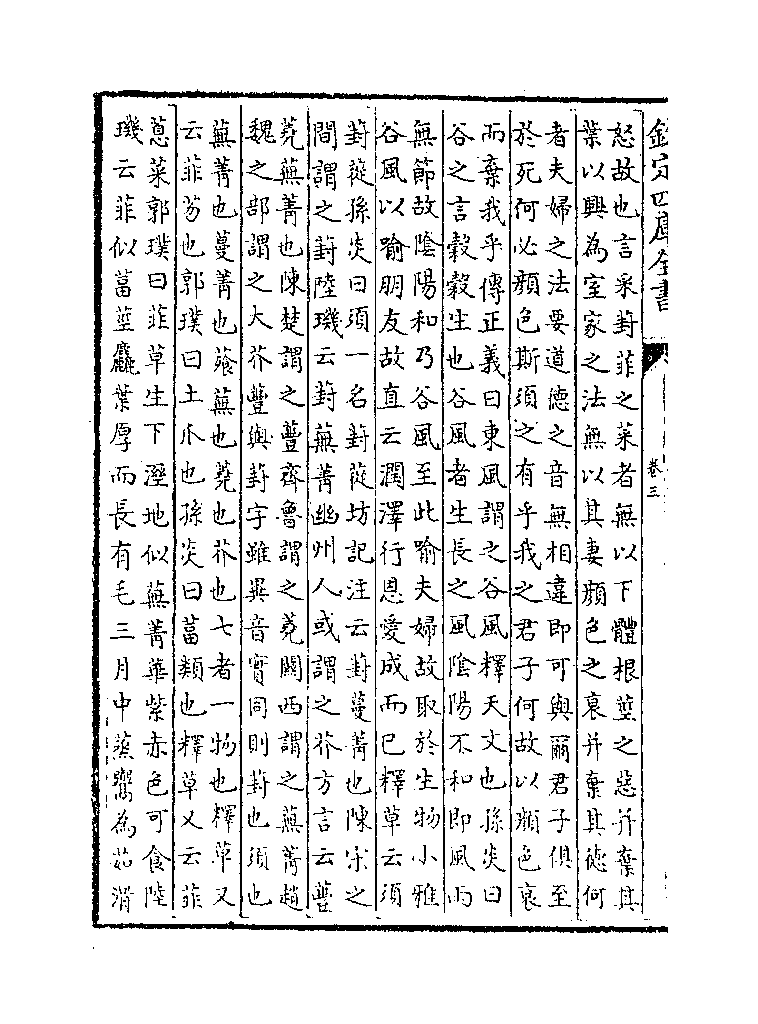 欽定四庫全書
卷三
怒故也言采葑菲之菜者無以下體根莖之惡并棄其
葉以興為室家之法無以其妻顔色之衰并棄其徳何
者夫婦之法要道徳之音無相違即可與爾君子俱至
於死何必顔色斯須之有乎我之君子何故以顔色衰
而棄我乎傳正義曰東風謂之谷風釋天文也孫炎曰
谷之言穀穀生也谷風者生長之風隂陽不和即風雨
無節故隂陽和乃谷風至此喻夫婦故取於生物小雅
谷風以喻朋友故直云潤澤行恩愛成而已釋草云須
葑蓯孫炎曰須一名葑蓯坊記注云葑蔓菁也陳宋之
間謂之葑陸璣云葑蕪菁幽州人或謂之芥方言云蘴
蕘蕪菁也陳楚謂之蘴齊魯謂之蕘關西謂之蕪菁趙
魏之部謂之大芥蘴與葑字雖異音實同則葑也須也
蕪菁也蔓菁也蕵蕪也蕘也芥也七者一物也釋草又
云菲芴也郭璞曰土瓜也孫炎曰葍類也釋草又云菲
蒠菜郭璞曰菲草生下溼地似蕪菁華紫赤色可食陸
璣云菲似葍莖麤葉厚而長有毛三月中蒸鬻為茹滑